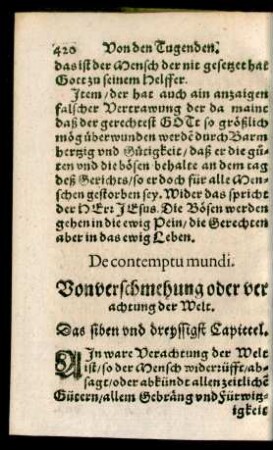 420 Von den Tugenden.
das ist der Mensch der nit gesetzt hat
Gott zu seinem Helffer.
Item/der hat auch ain anzaigen
falscher Vertrawung der da maint
daß der gerechtest GOTt so größlich
mög überwunden werdē durch Barm
hertzig vnd Gütigkeit/daß er die gü-
ten vnd die bösen behalte an dem tag
deß Gerichts/so er doch für alle Men-
schen gestorben sey. Wider das spricht
der HErr JEsus. Die Bösen werden
gehen in die ewig Pein/die Gerechten
aber in das ewig Leben.
De contemptu mundi.
Von verschmehung oder ver
achtung der Welt.
Das siben vnd dreyssigst Capittel.
AIn ware Verachtung der Welt
ist/so der Mensch widerrüfft/ab-
sagt/oder abkündt allen zeitlichē
Gütern/allem Gebräng vnd Fürwitz-
igkeit